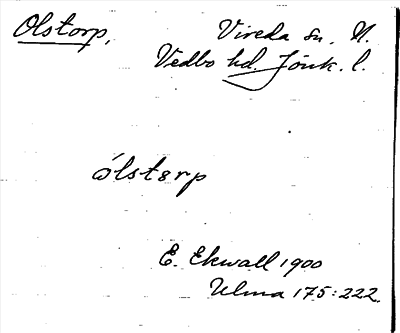 Olstorp,
Vireda sn. N.
Vedbo hd. Jönk. l.
ólstərp
E. Ekwall 1900
Ulma 175:222.